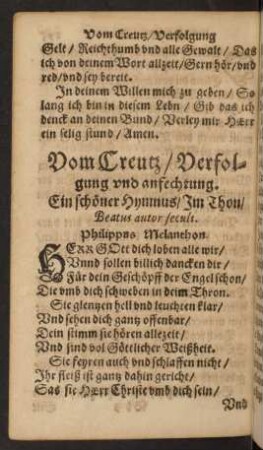 Vom Creutz/Verfolgung
Gelt/ Reichthumb vnd alle Gewalt/ Das
ich von deinem Wort allzeit/Gern hör/vnd
red/vnd sey bereit.
In deinem Willen mich zu geben/ So
lang ich bin in diesem Lebn/ Gib das ich
denck an deinen Bund/ Verley mir HErr
ein selig stund/ Amen.
Vom Creutz/Verfol-
gung vnd anfechtung.
Ein schöner Hymnus/ Im Thon/
Beatus autor seculi.
Philippns Melancthon.
HERR GOtt dich loben alle wir/
Vnnd sollen billich dancken dir/
Für dein Geschöpff der Engel schon/
Die vmb dich schweben in deim Thron.
Sie glentzen hell vnd leuchten klar/
Vnd sehen dich gantz offenbar/
Dein stimm sie hören allezeit/
Vnd sind vol Göttlicher Weißheit.
Sie feyren auch vnd schlaffen nicht/
Ihr fleiß ist gantz dahin gericht/
Das sie HErr Christe vmb dich sein/
Vnd